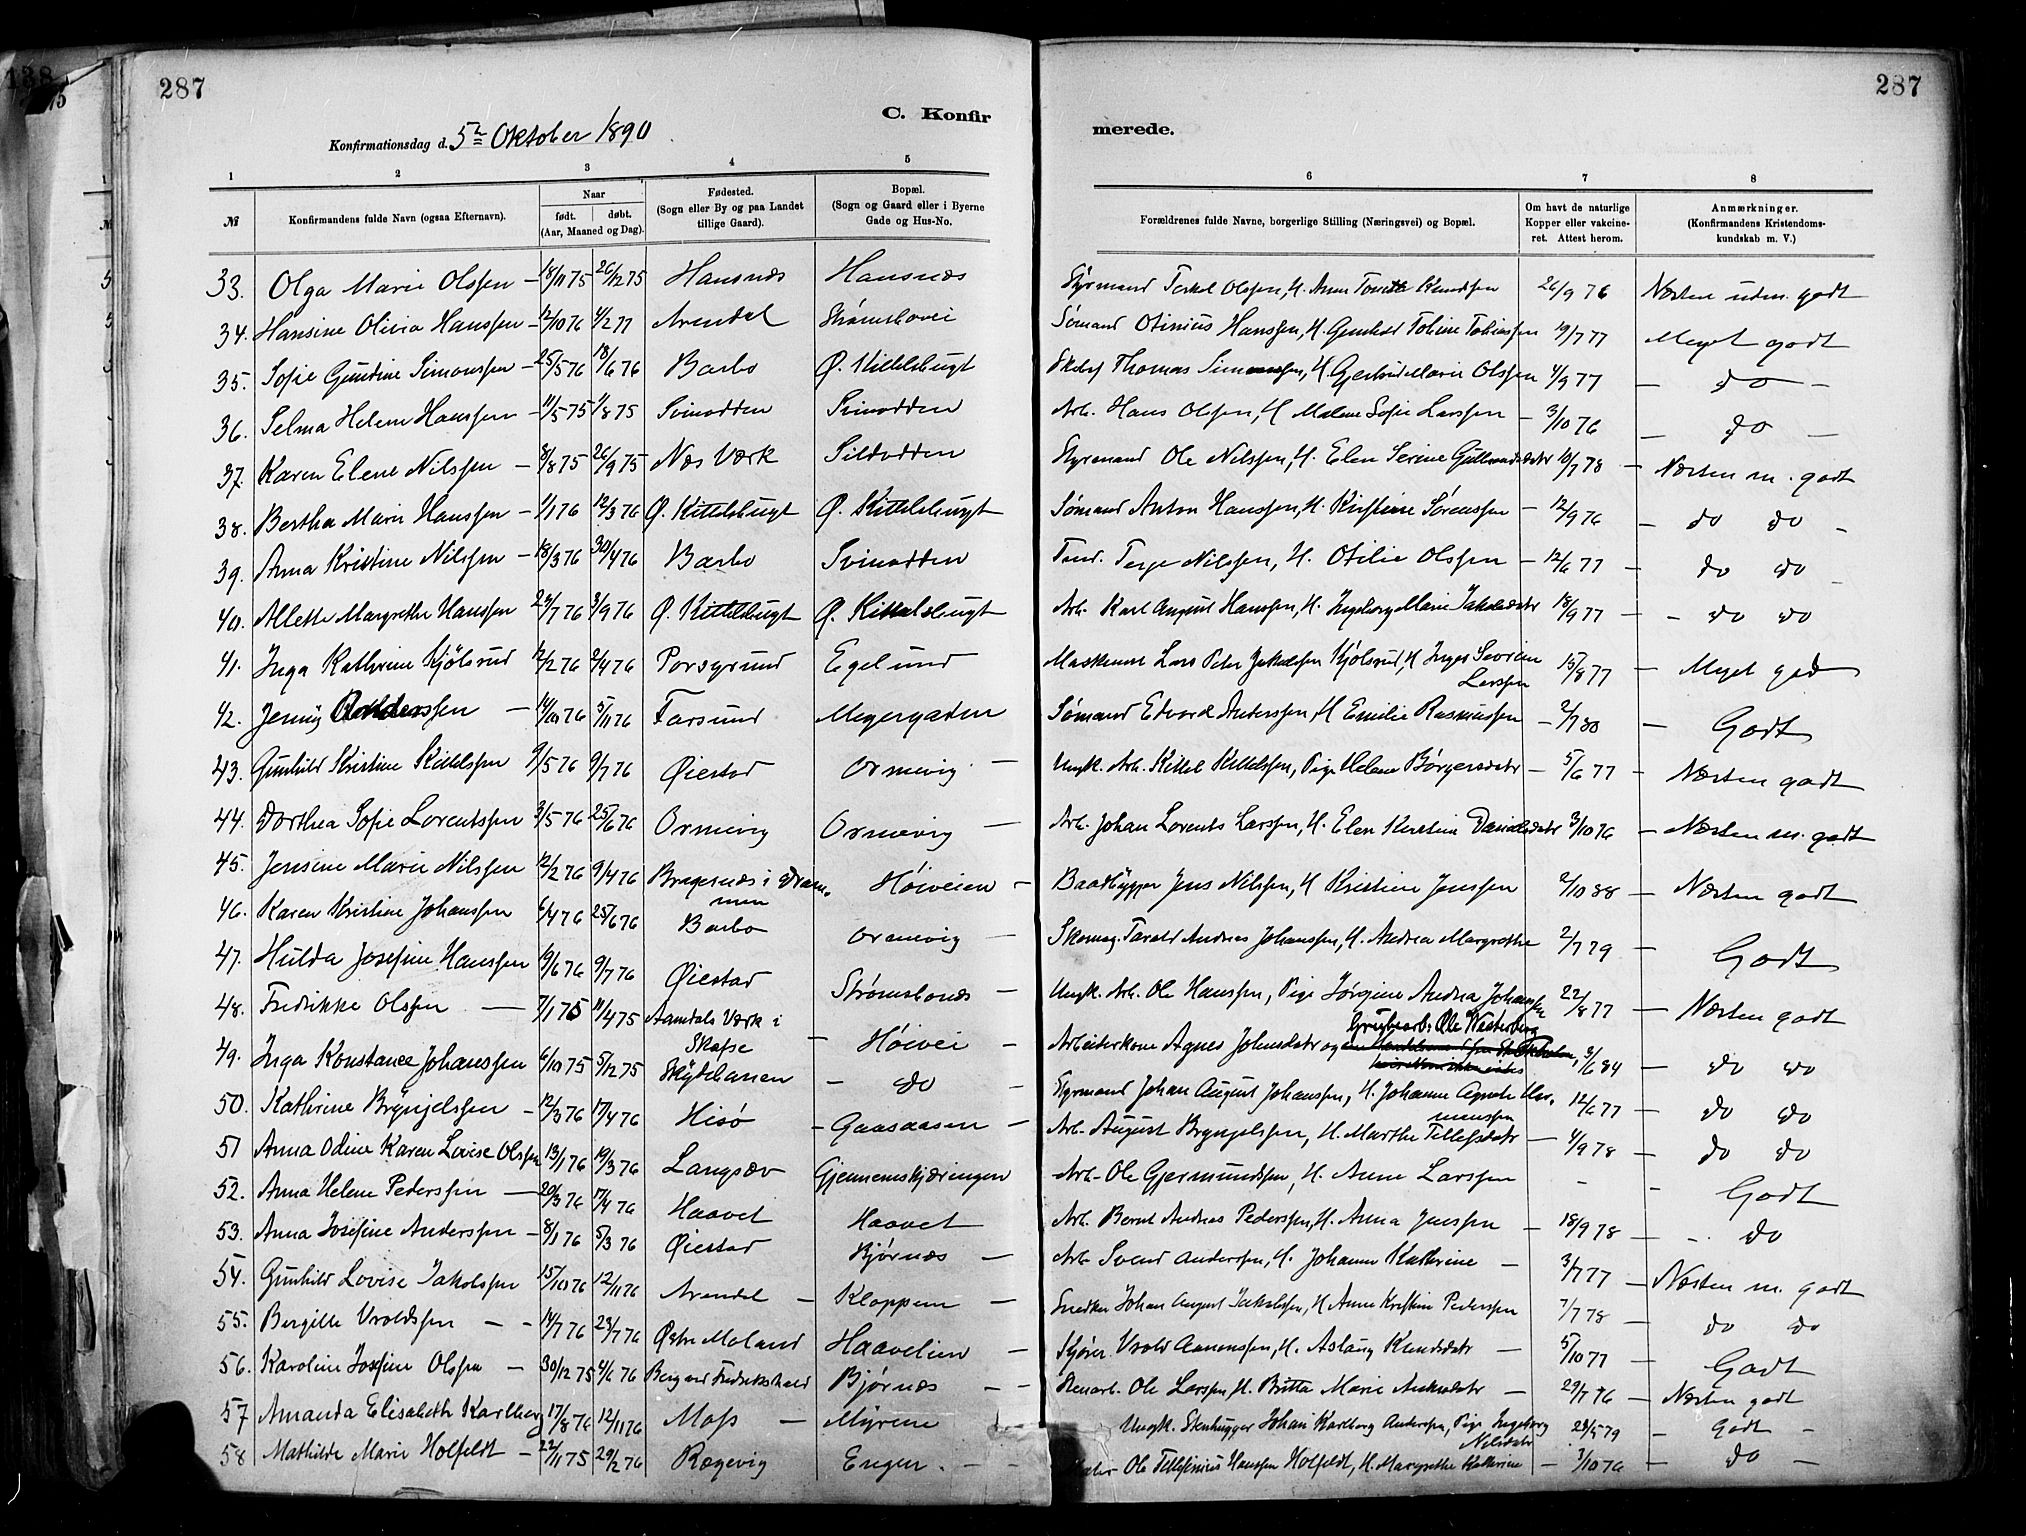 138
287
287
C. Konfir
merede.
Konfirmationsdag d. 5te Oktober 1890
1 2 3 4 5 6 7 8
№ Konfirmandens fulde Navn (ogsaa Efternavn). Naar født. døbt. (Aar, Maaned og Dag). Fødested. (Sogn eller By og paa Landet tillige Gaard). Bopæl. (Sogn og Gaard eller i Byerne Gade og Hus-No. Forældrenes fulde Navne, borgerlige Stilling (Næringsvei) og Bopæl. Om havt de naturlige Kopper eller vakcineret. Attest herom. Anmærkninger. (Konfirmandens Kristendomskundskab m. V.)
33. Olga Marie Olssen – 18/11 75 26/12 75 Hansnæs Hansnæs Styrmand Terkel Olssen, H. Anne Knudssen 26/9 76 Næsten udm. godt
34. Hansine Olivia Hanssen – 12/10 76 4/2 77 Arendal Strømsbovei Sømand Otinius Hanssen, H. Gunhild Tobine Tobiassen 19/7 77 Meget godt
35. Sofie Gundine Simonssen – 25/5 76 18/6 76 Barbo Ø. Kittelsbugt Thomas Simonssen, H. Gertrud Marie Olssen 4/9 77 – do –
36. Selma Helene Hanssen – 11/5 75 1/8 75 Svinodden Svinodden Arb. Hans Olssen, H. Malene Sofie Larssen – 3/10 76 – do –
37. Karen Elene Nilssen – 8/8 75 26/9 75 Næs Værk Sildodden Styrmand Ole Nilssen, H. Elen Serine 10/7 78 – Næsten m. godt
38. Bertha Marie Hanssen – 1/1 76 12/3 76 Ø. Kittelsbugt Ø. Kittelsbugt Sømand Anton Hanssen, H. Kristine Sørenssen – 12/9 76 – do do –
39. Anna Kristine Nilssen – 18/3 76 30/4 76 Barbo Svinodden Terje Nilssen, H. Otilie Olssen – 12/6 77 – do do –
40. Allette Margrethe Hanssen 23/7 76 3/9 76 Ø. Kittelsbugt Ø. Kittelsbugt Arb. Karl August Hanssen, H. Ingeborg Marie Jakobsdatr 18/9 77 – do do
41. Inga Kathrine Kjölsrud 12/2 76 2/4 76 Porsgrund Egelund Maskinist Lars Peter Jakobssen Kjölsrud, H. Inger Severine Larssen 15/8 77 – Meget god
42. Jenny Anderssen – 76 5/11 76 Farsund Meyergaden Sømand Edvard Anderssen, H. Emilie Rasmussen – 2/7 80 – Godt
43. Gunhild Kristine Kittelssen 9/5 76 9/7 76 Øiestad Ormevig – Ungk. Arb. Kittel Kittelssen, Pige Helene Börgersdatr – 5/6 77 – Næsten godt
44. Dorthea Sofie Lorentssen 3/5 76 25/6 76 Ormevig Ormevig – Arb. Johan Lorents Larssen, H. Elen Kirstine Danielsdatr 3/10 76 – Næsten m. godt
45. Jensine Marie Nilssen 12/2 76 9/4 76 Bragernæs i Drammen Høiveien – Baadbygger Jens Nilssen, H. Kristine Jenssen 2/10 88 – Næsten godt
46. Karen Kristine Johanssen 6/4 76 25/6 76 Barbo Ormevig – Skomag. Tarald Andreas Johanssen, H. Andrea Margrethe 2/7 79 – Godt
47. Hulda Josefine Hanssen 19/6 76 9/7 76 Øiestad Strømsbonæs – Ungk. Arb. Ole Hanssen, Pige Jörgine Andrea Johanssen 22/8 77 – Næsten godt
48. Fredrikke Olssen – 7/1 75 11/4 75 Aamdals Værk i Skafse – Høivei – Arbeiterkone Agnes Johnsdatr og Grubearb. Ole Westerberg 3/6 84 – do do
49. Inga Konstance Johanssen 6/10 75 5/12 75 Skytebanen – do – Styrmand Johan August Johanssen, H. Johanne Agnete Hermanssen 12/6 77 – do do
50. Kathrine Brynjelssen – 12/3 76 17/4 76 Hisø – Gaasaasen – Arb. August Brynjelssen, H. Marthe Tellefsdatr – 4/9 78 – do do
51 Anna Odine Karen Lovise Olssen 13/1 76 19/3 76 Langsæv Gjennemskjæringen Arb. Ole Gjermundssen, H. Anne Larssen – – Godt
52. Anna Helene Pederssen – 20/3 76 17/4 76 Haavet Haavet Arb. Bernt Andreas Pederssen, H. Anna Jenssen – 18/9 78 – – do
53. Anna Josefine Anderssen – 8/1 76 5/3 76 Øiestad Bjørnæs – Arb. Svend Anderssen, H. Johanne Kathrine – 3/7 77 – Næsten m. godt
54. Gunhild Lovise Jakobssen 15/10 76 12/11 76 Arendal – Kloppene – Snedker Johan August Jakobssen, H. Anne Kristine Pederssen 7/7 78 – do do
55. Bergitte Uroldssen – – 14/7 76 23/7 76 Østre Moland Haavelien – Urold Aanonssen, H. Aslaug Knudsdatr – 5/10 77 – Godt
56. Karoline Josefine Olssen – 30/12 75 4/6 76 Berg ved Fredrikshald Bjørnæs – – Stenarb. Ole Larssen, H. Britta Marie Andersdatr – 29/7 76 – Næsten godt
57 Amanda Elisabeth Karlberg 17/8 76 12/11 76 Moss – Myrene Ungk. Stenhugger Johan Karlberg Anderssen, Pige Ingeborg Nilsdatr 23/5 79 – Godt –
58 Mathilde Marie Holfeldt – 22/11 75 29/2 76 Rægevig Engen. – – Ole Tellefsinius Hanssen Holfeldt, H. Margrethe Kathrine – 3/10 76 – do –